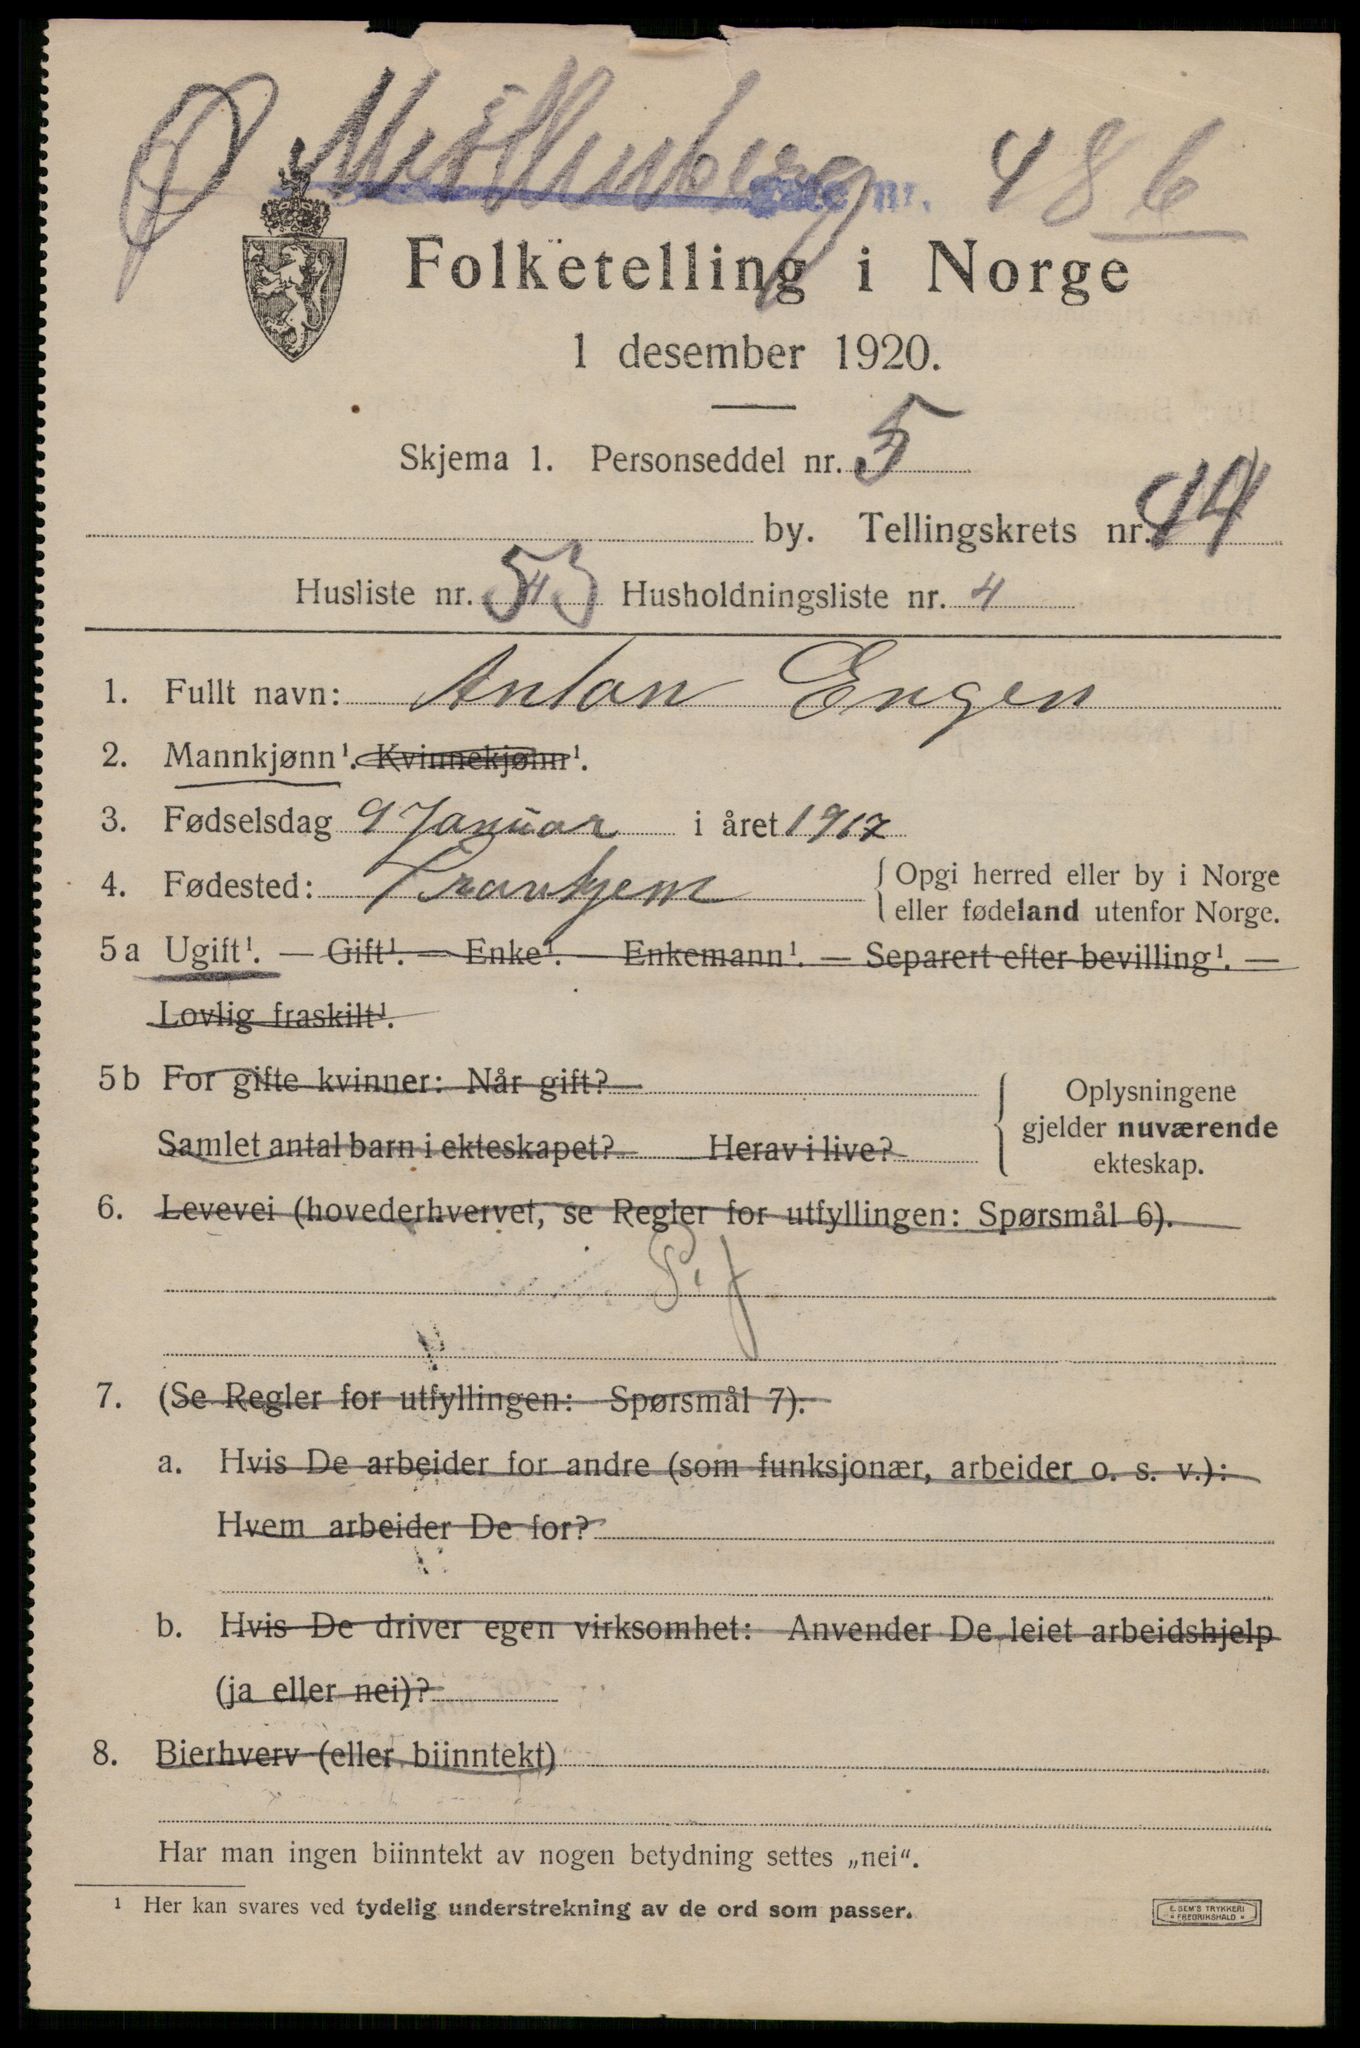 Ø Möllenberg gate nr. 48 b
Folketelling i Norge
1 desember 1920.
Skjema 1. Personseddel nr. 5
by. Tellingskrets nr. 44
Husliste nr. 53 Husholdningsliste nr. 4
1. Fullt navn: Anton Engen
2. Mannkjønn¹. Kvinnekjønn¹.
3. Fødselsdag 9 Januar i året 1917
4. Fødested: Trontjem { Opgi herred eller by i Norge
eller fødeland utenfor Norge.
5a Ugift¹. — Gift¹. — Enke¹. — Enkemann¹. — Separert efter bevilling¹. —
Lovlig fraskilt¹.
5b For gifte kvinner: Når gift?
Samlet antal barn i ekteskapet? Herav i live?
Oplysningene
gjelder nuværende
ekteskap.
6. Levevei (hovederhvervet, se Regler for utfyllingen: Spørsmål 6).
7. (Se Regler for utfyllingen: Spørsmål 7).
a. Hvis De arbeider for andre (som funksjonær, arbeider o. s. v.):
Hvem arbeider De for?
b. Hvis De driver egen virksomhet: Anvender De leiet arbeidshjelp
(ja eller nei)?
8. Bierhverv (eller biinntekt)
Har man ingen biinntekt av nogen betydning settes „nei“.
¹ Her kan svares ved tydelig understrekning av de ord som passer.
E. SEM'S TRYKKERI
FREDRIKSHALD